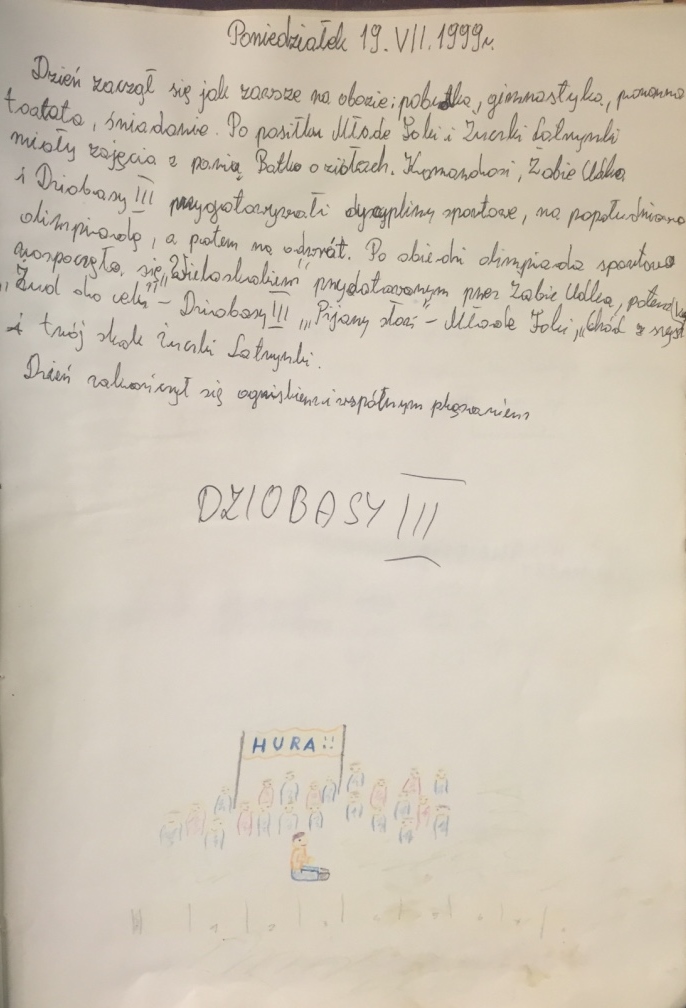 Poniedziałek 19.VII.1999r.
Dzień zaczął się jak zawsze na obozie: pobudka, gimnastyka, poranna
toaleta, śniadanie. Po posiłku Młode Foki i Żuczki Latrynki
miały zajęcia z panią Batko o ziołach. Komandosi, Żabie Udka
i Dziobasy III przygotowywali dyscypliny sportowe, na popołudniową
olimpiadę, a potem na odwrót. Po obiedzi olimpiada sportowa
rozpoczęła się „Wieloskokiem" przygotowanym przez Żabie Udka, potem
„Rzut do celu" – Dziobasy III, „Pijany słoń" – Młode Foki, „Chód z
i trój skok Żuczki Latrynki.
Dzień zakończył się ogniskiem i wspólnym pląsaniem
DZIOBASY III
HURA!!